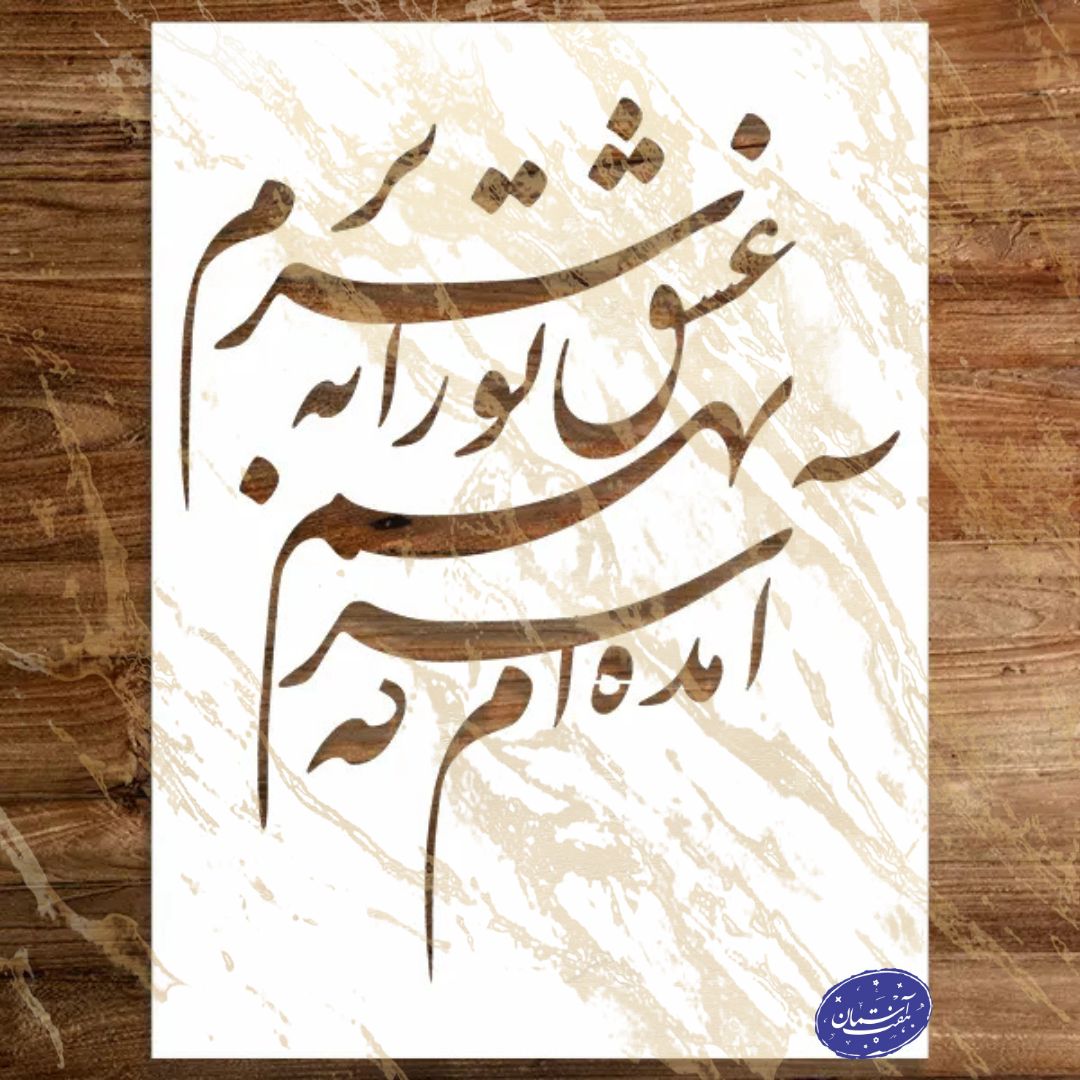 آمده ام که سر نهم
عشق تو را به سر برم
هفت آسمان